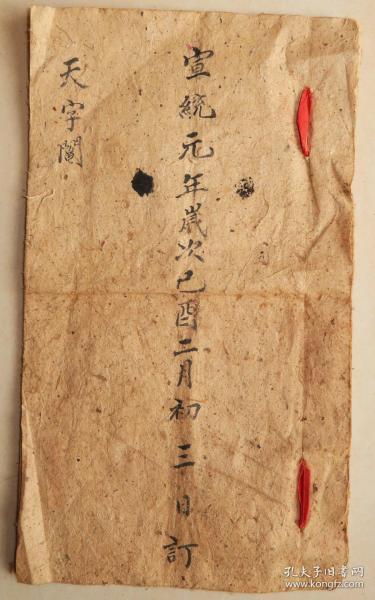 宣統元年歲次己酉二月初三日訂
天字閣
孔夫子旧书网
www.kongfz.com